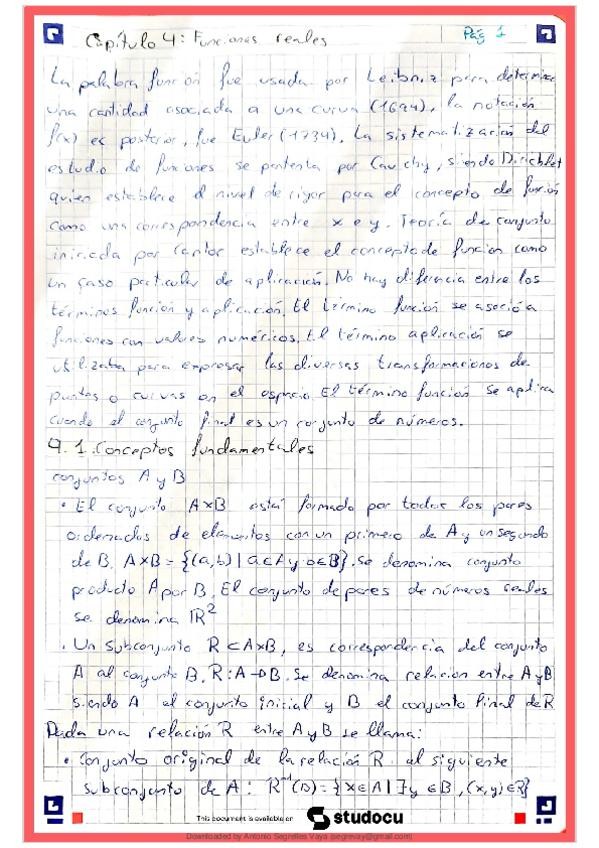 Capítulo 4: Funciones reales
Pág 1
La palabra función fue usada por Leibniz para determinar
una cantidad asociada a una curva (1694), la notación
f(x) es posterior, fue Euler (1734). La sistematización del
estudio de funciones se por Cauchy, siendo Dirichlet
quien establece el nivel de rigor para el concepto de función
como una correspondencia entre x e y. Teoría de conjunto
iniciada por Cantor establece el concepto de función como
un caso particular de aplicación. No hay diferencia entre los
términos función y aplicación. El término función se asoció a
funciones con valores numéricos. El término aplicación se
utilizaba para expresar las diversas transformaciones de
puntos o curvas en el espacio El término función se aplica
cuando el conjunto final es un conjunto de números.
4.1. Conceptos fundamentales
conjuntos A y B
• El conjunto AxB está formado por todos los pares
ordenados de elementos con un primero de A y un segundo
de B. AxB = {(a,b) | a∈A y b∈B}. Se denomina conjunto
producto A por B. El conjunto de pares de números reales
se denomina ℝ²
• Un subconjunto R⊂AxB, es correspondencia del conjunto
A al conjunto B. R: A→B. Se denomina relación entre A y B
siendo A el conjunto inicial y B el conjunto final de R
Dada una relación R entre A y B se llama:
• Conjunto original de la relación R al siguiente
subconjunto de A: R⁻¹(B) = {x∈A | ∃y∈B, (x,y)∈R}
This document is available on
studocu
Downloaded by Antonio Segrelles Vaya (segrevay@gmail.com)